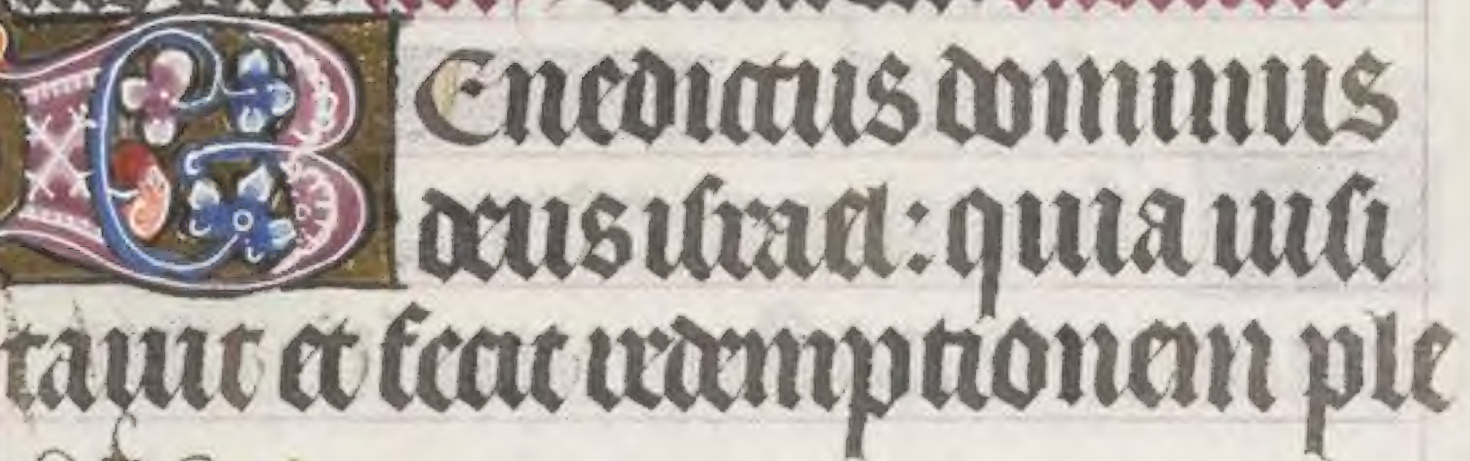 BEnedictus dominus
deus israel: quia uisi
tauit et fecit redemptionem ple